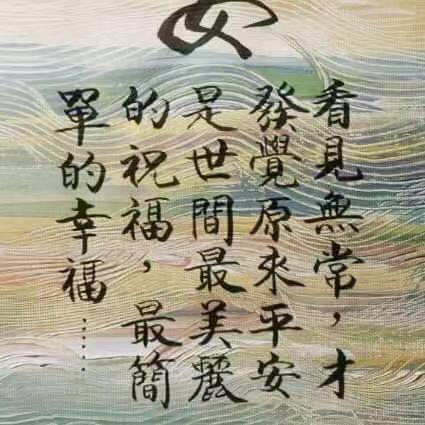 安
看見無常，才
發覺原來平安
是世間最美麗
的祝福，最簡
單的幸福……